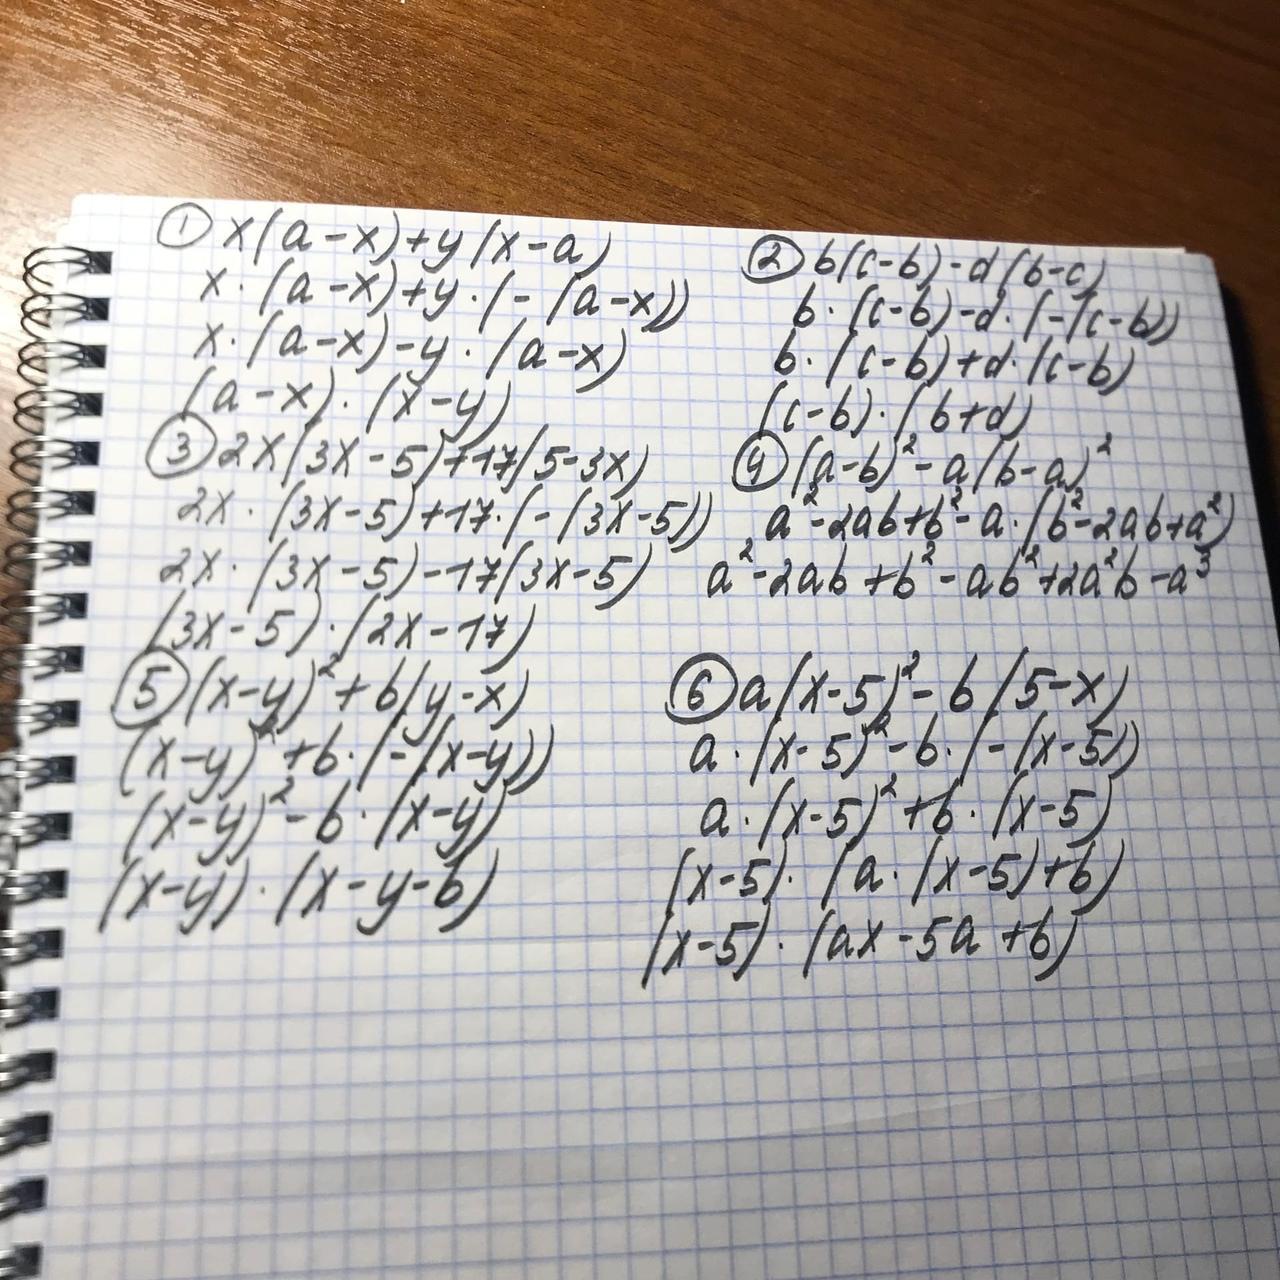 ① x(a-x)+y(x-a)
x·(a-x)+y·(-(a-x))
x·(a-x)-y·(a-x)
(a-x)·(x-y)
② b(c-b)-d(b-c)
b·(c-b)-d·(-(c-b))
b·(c-b)+d·(c-b)
(c-b)·(b+d)
③ 2x(3x-5)+17(5-3x)
2x·(3x-5)+17·(-(3x-5))
2x·(3x-5)-17(3x-5)
(3x-5)·(2x-17)
④ (a-b)²-a(b-a)²
a²-2ab+b²-a·(b²-2ab+a²)
a²-2ab+b²-ab²+2a²b-a³
⑤ (x-y)²+b(y-x)
(x-y)²+b·(-(x-y))
(x-y)²-b·(x-y)
(x-y)·(x-y-b)
⑥ a(x-5)²-b(5-x)
a·(x-5)²-b·(-(x-5))
a·(x-5)²+b·(x-5)
(x-5)·(a·(x-5)+b)
(x-5)·(ax-5a+b)